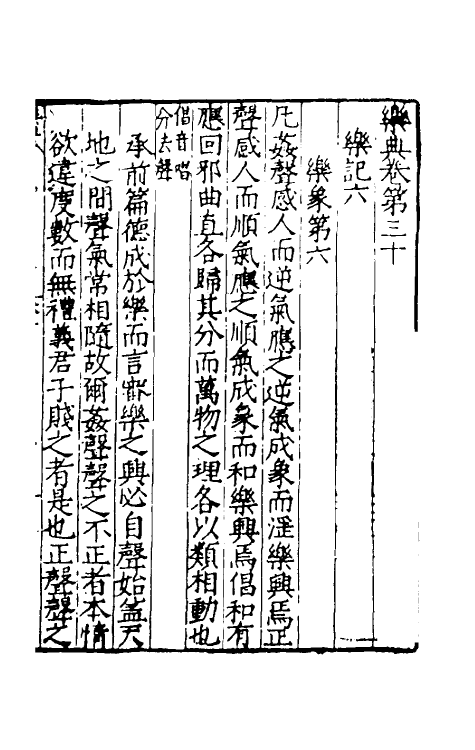 樂典卷第三十
樂記六
樂象第六
凡姦聲感人而逆氣應之逆氣成象而淫樂興焉正
聲感人而順氣應之順氣成象而和樂興焉倡和有
應回邪曲直各歸其分而萬物之理各以類相動也
倡音唱
分去聲
承前篇德成於樂而言審樂之興必自聲始蓋天
地之間聲氣常相隨故爾姦聲聲之不正者本情
欲違度數而無禮義君子賤之者是也正聲聲之